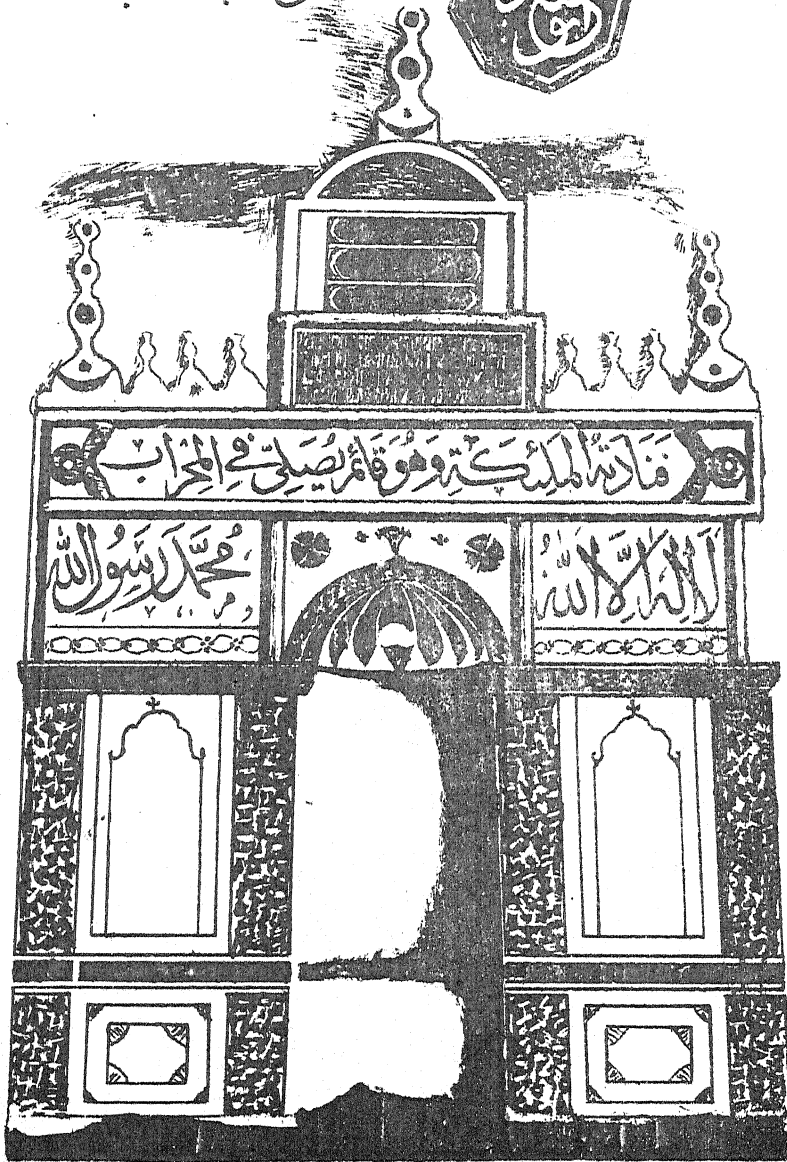 فَنَادَتْهُ الْمَلٰئِكَةُ وَهُوَ قَائِمٌ يُصَلِّي فِي الْمِحْرَابِ
لَا إِلٰهَ إِلَّا اللّٰهُ
مُحَمَّدٌ رَسُولُ اللّٰهِ